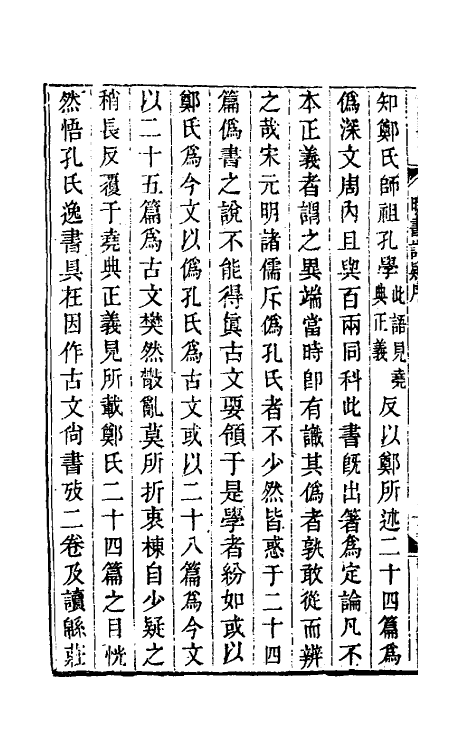 知鄭氏師祖孔學此語見堯典正義反以鄭所述二十四篇爲
僞深文周內且與百兩同科此書旣出著爲定論凡不
本正義者謂之異端當時卽有識其僞者孰敢從而辨
之哉宋元明諸儒斥僞孔氏者不少然皆惑于二十四
篇僞書之說不能得眞古文要領于是學者紛如或以
鄭氏爲今文以僞孔氏爲古文或以二十八篇爲今文
以二十五篇爲古文樊然殽亂莫所折衷棟自少疑之
稍長反覆于堯典正義見所載鄭氏二十四篇之目恍
然悟孔氏逸書具在因作古文尙書攷二卷及讀緜莊